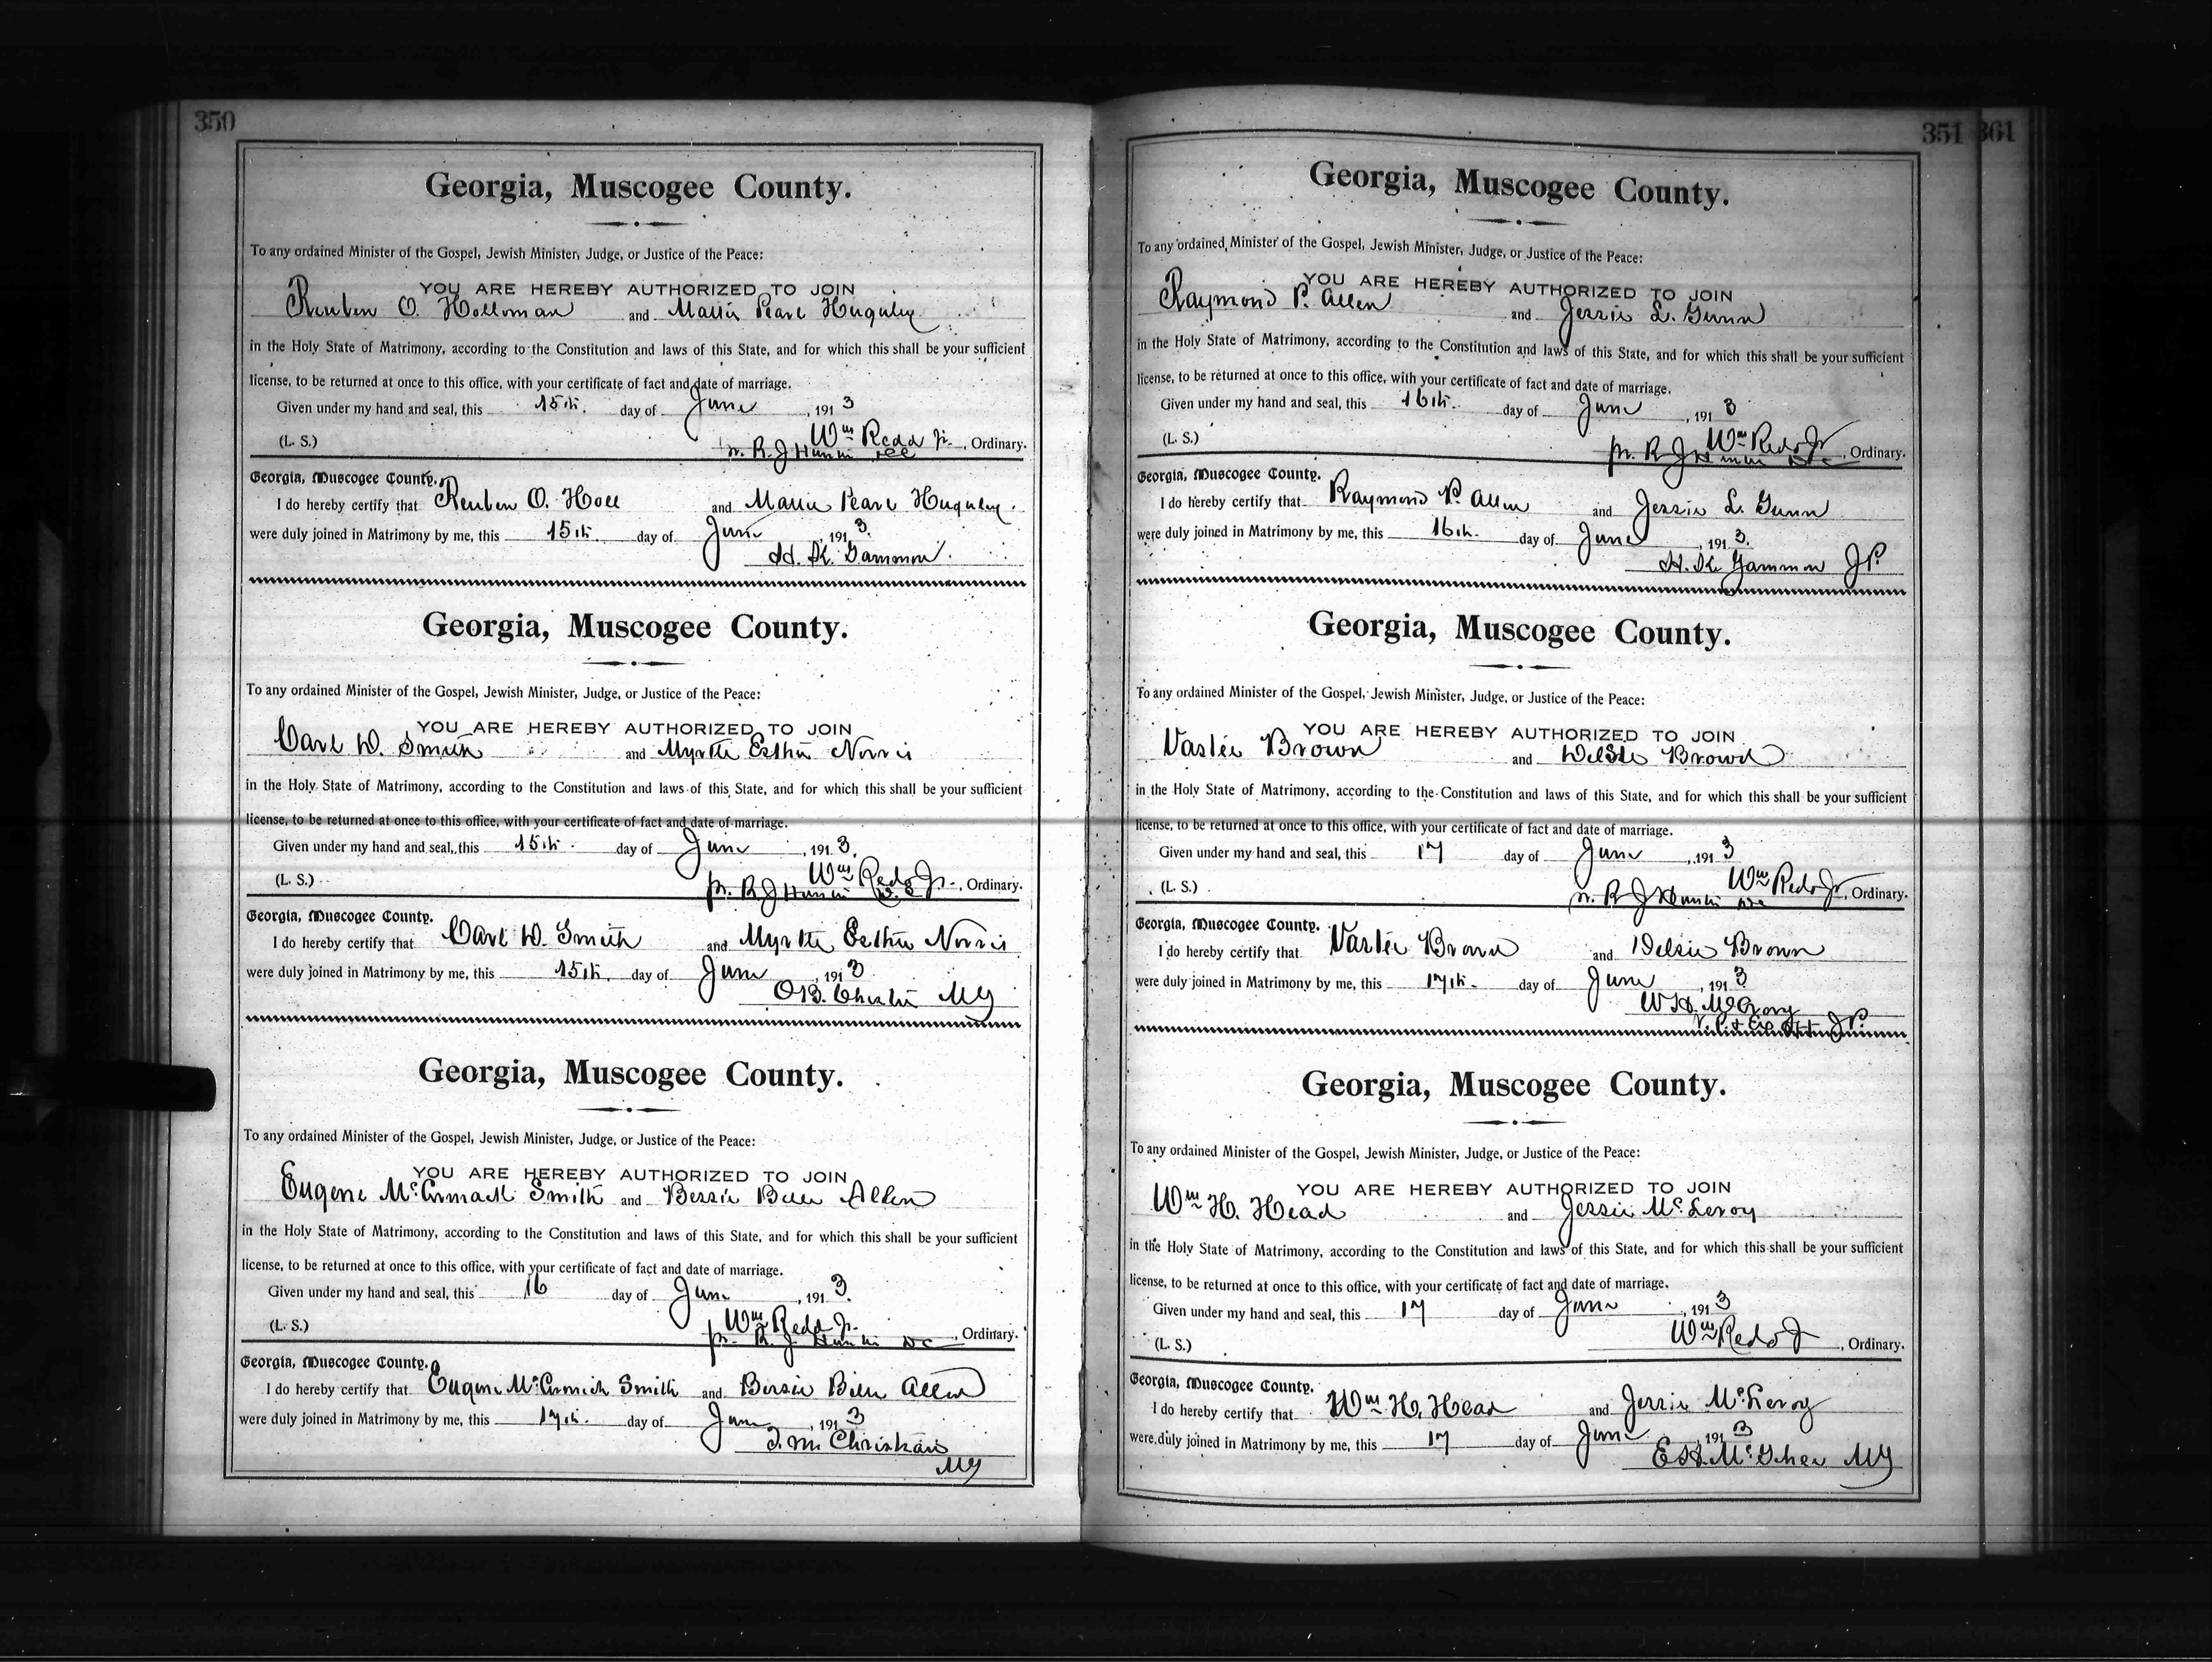 350
Georgia, Muscogee County.
To any ordained Minister of the Gospel, Jewish Minister, Judge, or Justice of the Peace:
YOU ARE HEREBY AUTHORIZED TO JOIN
Reuben O. Holloman and Pearl Huguley
in the Holy State of Matrimony, according to the Constitution and laws of this State, and for which this shall be your sufficient
license, to be returned at once to this office, with your certificate of fact and date of marriage.
Given under my hand and seal, this 15th. day of June, 1913
(L. S.) Wm Redd Jr., Ordinary.
R. J. Hunter
Georgia, Muscogee County.
I do hereby certify that Reuben O. Holl and Pearl Huguley.
were duly joined in Matrimony by me, this 15th. day of June, 1913.
H. K. Gammon.
Georgia, Muscogee County.
To any ordained Minister of the Gospel, Jewish Minister, Judge, or Justice of the Peace:
YOU ARE HEREBY AUTHORIZED TO JOIN
Carl W. Smith and Myrtle Esther Norris
in the Holy State of Matrimony, according to the Constitution and laws of this State, and for which this shall be your sufficient
license, to be returned at once to this office, with your certificate of fact and date of marriage.
Given under my hand and seal, this 15th. day of June, 1913.
(L. S.) Wm Redd Jr., Ordinary.
pr. R. J. Hunter
Georgia, Muscogee County.
I do hereby certify that Carl W. Smith and Myrtle Esther Norris
were duly joined in Matrimony by me, this 15th. day of June, 1913
O.B. Chester MG
Georgia, Muscogee County.
To any ordained Minister of the Gospel, Jewish Minister, Judge, or Justice of the Peace:
YOU ARE HEREBY AUTHORIZED TO JOIN
Eugene McCormack Smith and Bessie Allen
in the Holy State of Matrimony, according to the Constitution and laws of this State, and for which this shall be your sufficient
license, to be returned at once to this office, with your certificate of fact and date of marriage.
Given under my hand and seal, this 16 day of June, 1913.
(L. S.) Wm Redd Jr., Ordinary.
pr. R. J. Hunter DC
Georgia, Muscogee County.
I do hereby certify that Eugene McCormick Smith and Bessie Allen
were duly joined in Matrimony by me, this 17th. day of June, 1913
J. M. Christian
MG
351 361
Georgia, Muscogee County.
To any ordained Minister of the Gospel, Jewish Minister, Judge, or Justice of the Peace:
YOU ARE HEREBY AUTHORIZED TO JOIN
Raymond P. Allen and Jessie L. Gunn
in the Holy State of Matrimony, according to the Constitution and laws of this State, and for which this shall be your sufficient
license, to be returned at once to this office, with your certificate of fact and date of marriage.
Given under my hand and seal, this 16th. day of June, 1913
(L. S.) Wm Redd Jr, Ordinary.
pr. R. J. Hunter DC
Georgia, Muscogee County.
I do hereby certify that Raymond P. Allen and Jessie L. Gunn
were duly joined in Matrimony by me, this 16th. day of June, 1913.
H. K. Gammon JP.
Georgia, Muscogee County.
To any ordained Minister of the Gospel, Jewish Minister, Judge, or Justice of the Peace:
YOU ARE HEREBY AUTHORIZED TO JOIN
Brown and Brown
in the Holy State of Matrimony, according to the Constitution and laws of this State, and for which this shall be your sufficient
license, to be returned at once to this office, with your certificate of fact and date of marriage.
Given under my hand and seal, this 17 day of June, 1913
(L. S.) Wm Redd Jr, Ordinary.
pr. R. J. Hunter DC
Georgia, Muscogee County.
I do hereby certify that Brown and Brown
were duly joined in Matrimony by me, this 17th. day of June, 1913
W. H. McCrory
JP.
Georgia, Muscogee County.
To any ordained Minister of the Gospel, Jewish Minister, Judge, or Justice of the Peace:
YOU ARE HEREBY AUTHORIZED TO JOIN
Wm H. Head and Jessie McLeroy
in the Holy State of Matrimony, according to the Constitution and laws of this State, and for which this shall be your sufficient
license, to be returned at once to this office, with your certificate of fact and date of marriage.
Given under my hand and seal, this 17 day of June, 1913
(L. S.) Wm Redd Jr, Ordinary.
Georgia, Muscogee County.
I do hereby certify that Wm H. Head and Jessie McLeroy
were duly joined in Matrimony by me, this 17 day of June, 1913
E H. McGhee MG